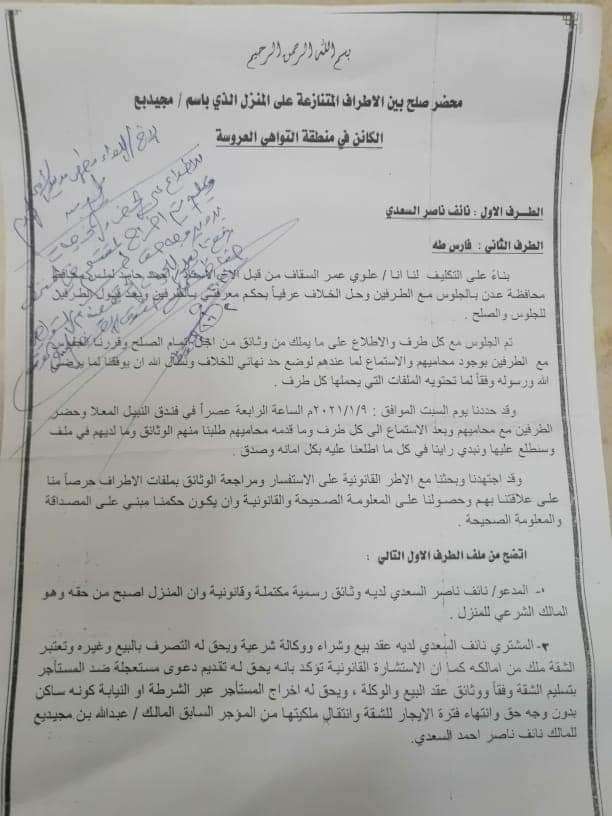 بسم الله الرحمن الرحيم
محضر صلح بين الاطراف المتنازعة على المنزل الذي باسم / مجيديع
الكائن في منطقة التواهي العروسة
الطرف الاول : نائف ناصر السعدي
الطرف الثاني : فارس طه
بناءً على التكليف لنا انا / علوي عمر السقاف من قبل الاخ الاستاذ / احمد حامد لملس محافظ
محافظة عدن بالجلوس مع الطرفين وحل الخلاف عرفياً بحكم معرفتي بالطرفين وبعد قبول الطرفين
للجلوس والصلح .
تم الجلوس مع كل طرف والاطلاع على ما يملك من وثائق من اجل اتمام الصلح وقررنا الجلوس
مع الطرفين بوجود محاميهم والاستماع لما عندهم لوضع حد نهائي للخلاف ونسأل الله ان يوفقنا لما يرضي
الله ورسوله وفقاً لما تحتويه الملفات التي يحملها كل طرف .
وقد حددنا يوم السبت الموافق : ٢٠٢١/١/٩م الساعة الرابعة عصراً في فندق النبيل المعلا وحضر
الطرفين مع محاميهم وبعد الاستماع الى كل طرف وما قدمه محاميهم طلبنا منهم الوثائق وما لديهم في ملف
وسنطلع عليها ونبدي راينا في كل ما اطلعنا عليه بكل امانه وصدق .
وقد اجتهدنا وبحثنا مع الاطر القانونية على الاستفسار ومراجعة الوثائق بملفات الاطراف حرصاً منا
على علاقتنا بهم وحصولنا على المعلومة الصحيحة والقانونية وان يكون حكمنا مبني على المصداقة
والمعلومة الصحيحة .
اتضح من ملف الطرف الاول التالي :
١- المدعو/ نائف ناصر السعدي لديه وثائق رسمية مكتملة وقانونية وان المنزل اصبح من حقه وهو
المالك الشرعي للمنزل .
٢- المشتري نائف السعدي لديه عقد بيع وشراء ووكالة شرعية ويحق له التصرف بالبيع وغيره وتعتبر
الشقة ملك من امالكه كما ان الاستشارة القانونية تؤكد بانه يحق له تقديم دعوى مستعجلة ضد المستأجر
بتسليم الشقة وفقاً ووثائق عقد البيع والوكلة ، ويحق له اخراج المستأجر عبر الشرطة او النيابة كونه ساكن
بدون وجه حق وانتهاء فترة الايجار للشقة وانتقال ملكيتها من المؤجر السابق المالك / عبدالله بن مجيديع
للمالك نائف ناصر احمد السعدي.